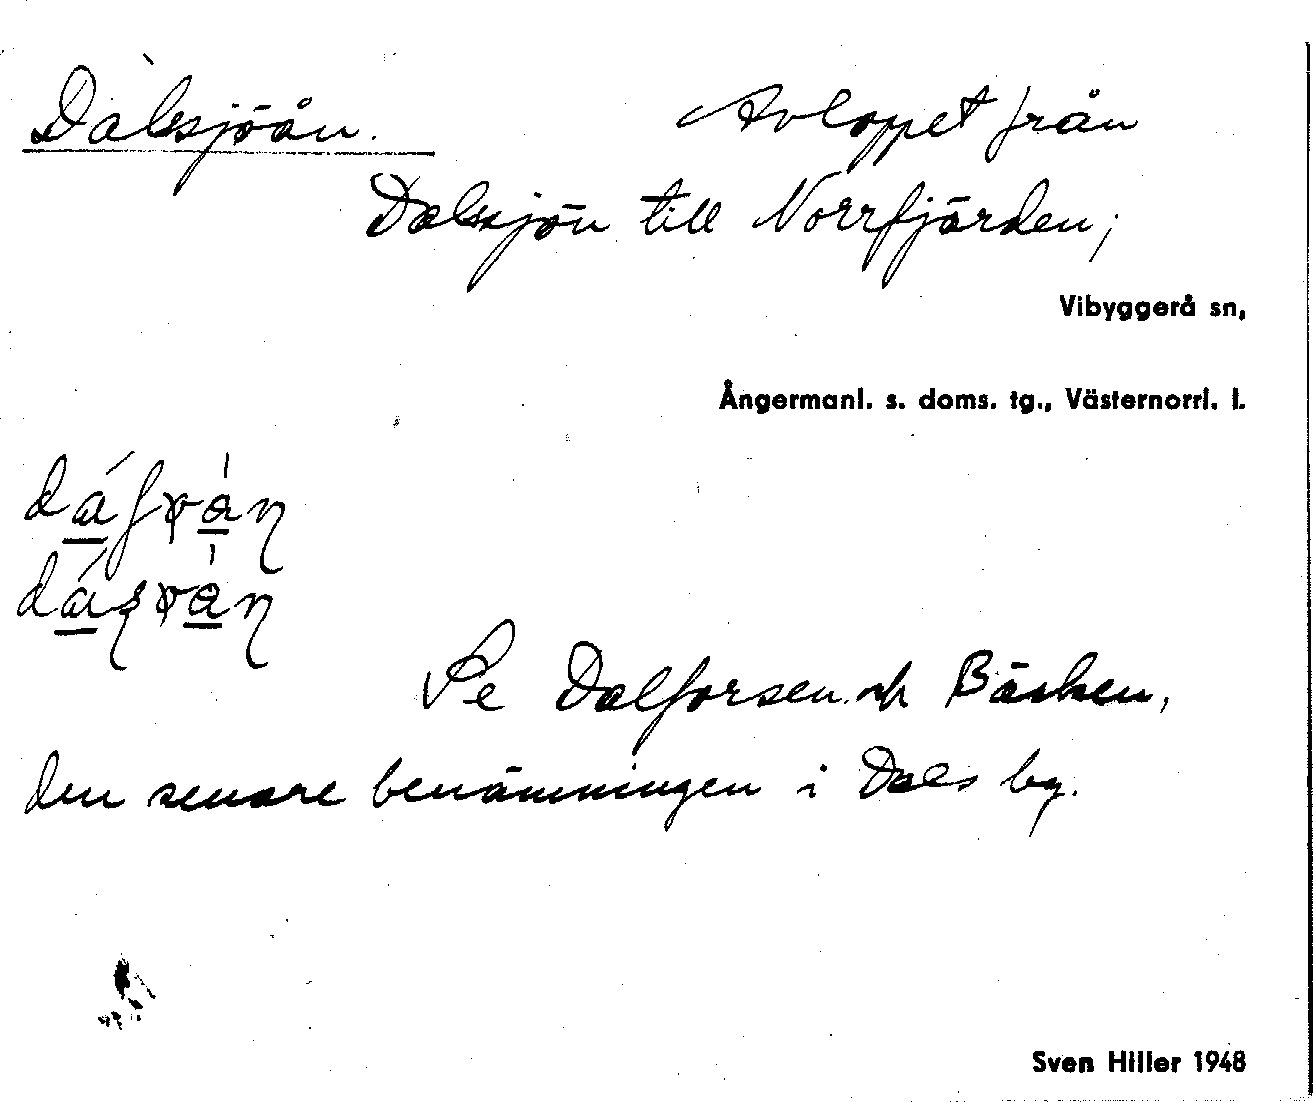 Dalssjöån. Avloppet från
Dalssjön till Norrfjärden;
Vibyggerå sn,
Ångermanl. s. doms. tg., Västernorrl. l.
Se Dalforsen och Bäcken,
den senare benämningen i Dals by.
Sven Hiller 1948